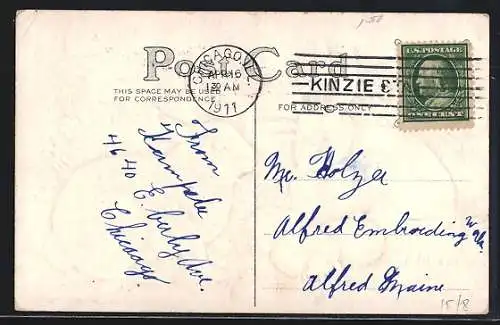 1,50
Post Card
CHICAGO, ILL.
APR 16
12 AM
1911
KINZIE
U.S. POSTAGE
ONE CENT
THIS SPACE MAY BE USED
FOR CORRESPONDENCE
FOR ADDRESS ONLY
From
4640 E. Ave.
Chicago.
Mr. Holzer
Alfred Embroiding
Alfred Maine
15/8